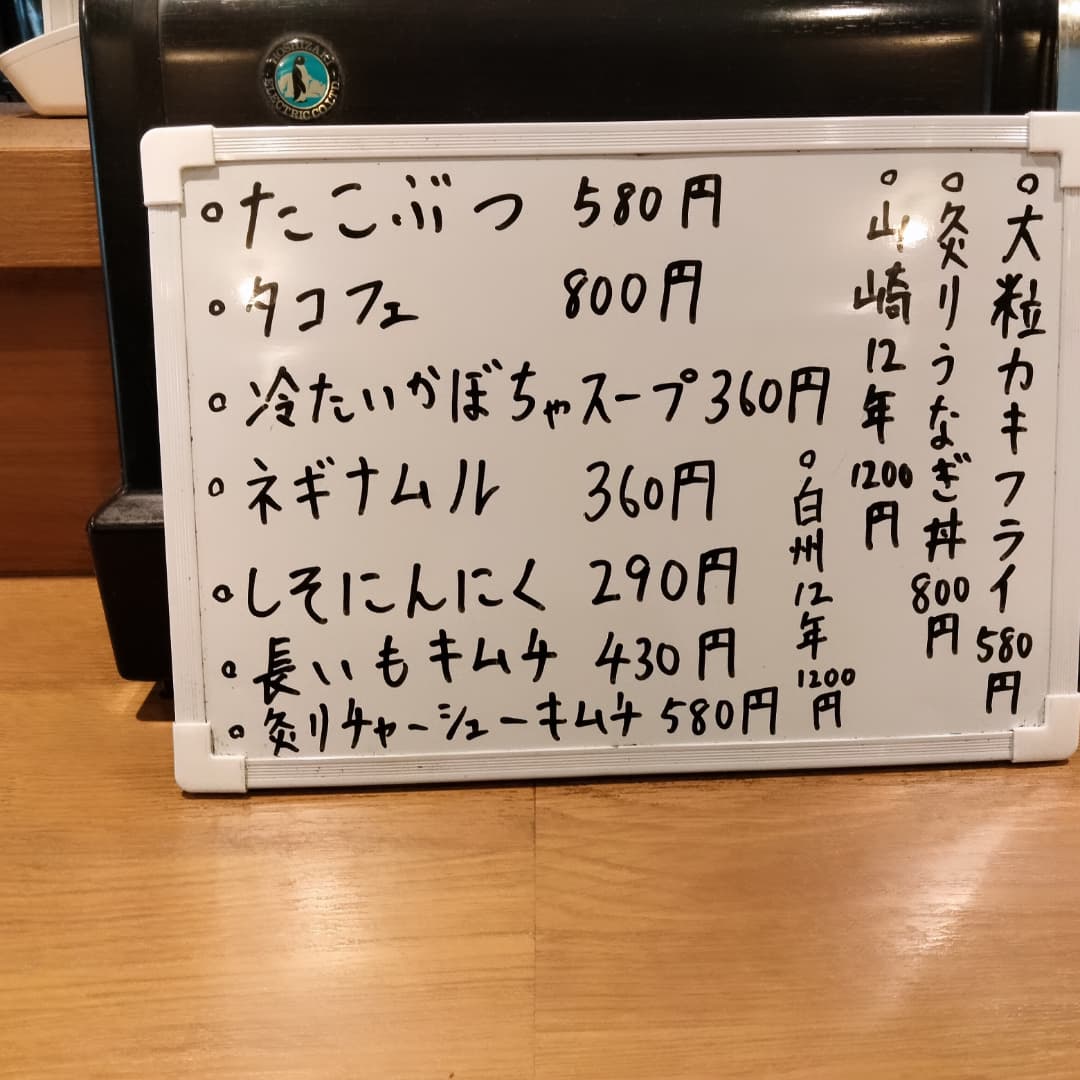 HOSHIZAKI ELECTRIC CO.,LTD.
◦たこぶつ 580円
◦タコフェ 800円
◦冷たいかぼちゃスープ 360円
◦ネギナムル 360円
◦しそにんにく 290円
◦長いもキムチ 430円
◦炙りチャーシューキムチ 580円
◦大粒カキフライ 580円
◦炙りうなぎ丼 800円
◦山崎12年 1200円
◦白州12年 1200円